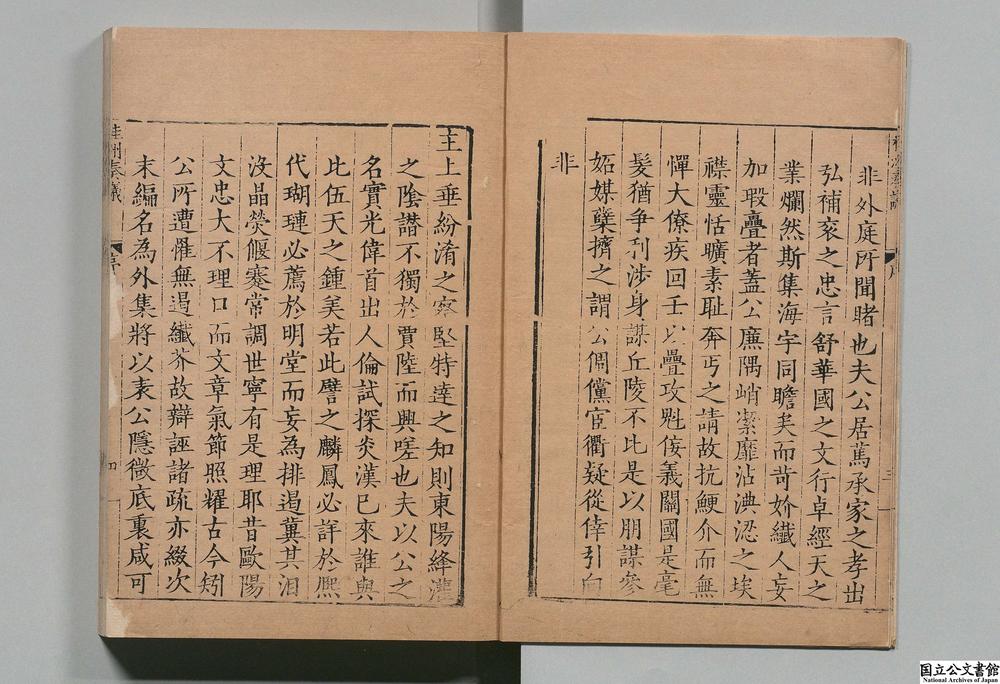 非外庭所聞睹也夫公居蔫承家之孝出
弘補衮之忠言舒華國之文行卓經天之
業爛然斯集海宇同瞻矣而苛妎纖人妄
加瑕疊者蓋公廉隅峭潔靡沾淟涊之埃
襟靈恬曠素耻奔丐之請故抗鯁介而無
憚大僚疾回壬以疊攻魁佞義關國是毫
髮猶争利涉身謀丘陵不比是以朋謀參
妬媒糵擠之謂公倜儻宦衢疑從倖引向
非
主上垂紛淆之察堅特達之知則東陽絳灌
之陰譖不獨於賈陸而興嗟也夫以公之
名實光偉首出人倫試探炎漢已來誰與
比伍天之鍾美若此譬之麟鳳必詳於熈
代瑚璉必薦於明堂而妄為排遏冀其汨
没晶熒偃蹇常調世寧有是理耶昔歐陽
文忠大不理口而文章氣節照耀古今矧
公所遭罹無過纖芥故辯誣諸疏亦綴次
末編名為外集將以表公隱微底裏咸可
桂洲奏議
序
三
桂洲奏議
序
四
国立公文書館
National Archives of Japan